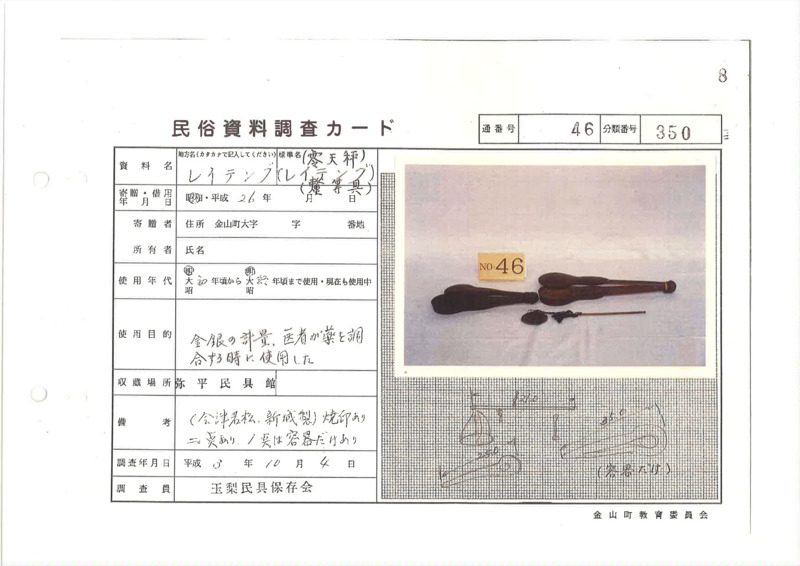 8
民俗資料調査カード
通番号 46 分類番号 350
資料名 地方名(カタカナで記入してください) レイテング 標準名 (零天秤) (レイテング) (釐等具)
寄贈・借用年月日 昭和・平成 26年 月 日
寄贈者 住所 金山町大字 字 番地
所有者 氏名
使用年代 明大昭 初年頃から 明大昭 終年頃まで使用・現在も使用中
使用目的 金銀の計量、医者が薬を調
合する時に使用した
収蔵場所 弥平民具館
備考 (会津若松、新城製)焼印あり
二点あり、1点は容器だけあり
調査年月日 平成 3年 10月 4日
調査員 玉梨民具保存会
NO.46
350
(容器だけ)
金山町教育委員会